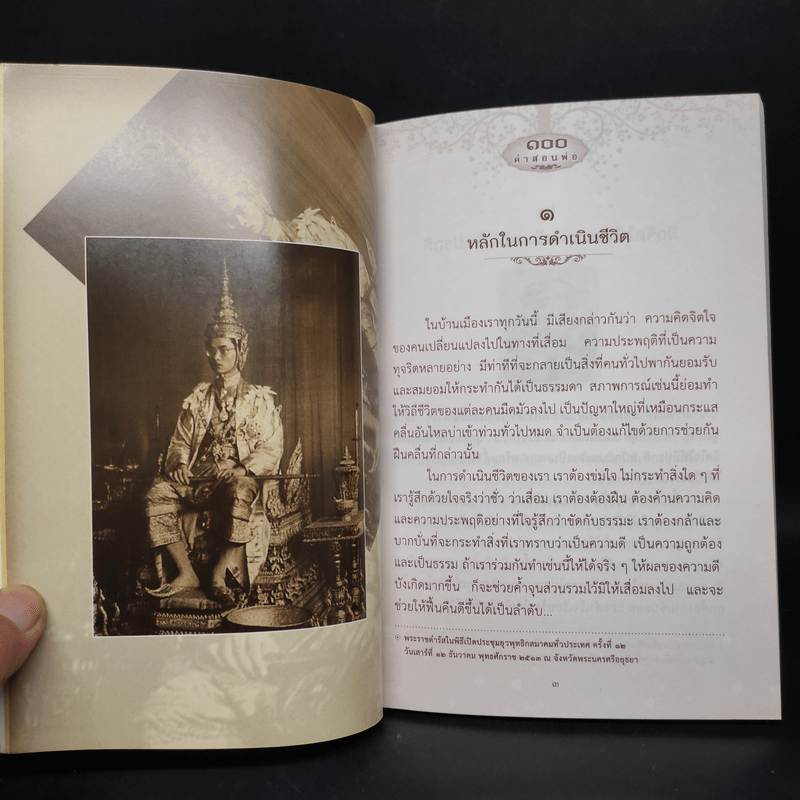 ๑๐๐
คำสอนพ่อ
๑
หลักในการดำเนินชีวิต
ในบ้านเมืองเราทุกวันนี้ มีเสียงกล่าวกันว่า ความคิดจิตใจ
ของคนเปลี่ยนแปลงไปในทางที่เสื่อม ความประพฤติที่เป็นความ
ทุจริตหลายอย่าง มีท่าทีที่จะกลายเป็นสิ่งที่คนทั่วไปพากันยอมรับ
และสมยอมให้กระทำกันได้เป็นธรรมดา สภาพการณ์เช่นนี้ย่อมทำ
ให้วิถีชีวิตของแต่ละคนมืดมัวลงไป เป็นปัญหาใหญ่ที่เหมือนกระแส
คลื่นอันไหลบ่าเข้าท่วมทั่วไปหมด จำเป็นต้องแก้ไขด้วยการช่วยกัน
ฝืนคลื่นที่กล่าวนั้น
ในการดำเนินชีวิตของเรา เราต้องข่มใจ ไม่กระทำสิ่งใด ๆ ที่
เรารู้สึกด้วยใจจริงว่าชั่ว ว่าเสื่อม เราต้องต้องฝืน ต้องค้านความคิด
และความประพฤติอย่างที่ใจรู้สึกว่าขัดกับธรรมะ เราต้องกล้าและ
บากบั่นที่จะกระทำสิ่งที่เราทราบว่าเป็นความดี เป็นความถูกต้อง
และเป็นธรรม ถ้าเราร่วมกันทำเช่นนี้ให้ได้จริง ๆ ให้ผลของความดี
บังเกิดมากขึ้น ก็จะช่วยค้ำจุนส่วนรวมไว้มิให้เสื่อมลงไป และจะ
ช่วยให้ฟื้นคืนดีขึ้นได้เป็นลำดับ...
พระราชดำรัสในพิธีเปิดประชุมยุวพุทธิกสมาคมทั่วประเทศ ครั้งที่ ๑๒
วันเสาร์ที่ ๑๒ ธันวาคม พุทธศักราช ๒๕๑๓ ณ จังหวัดพระนครศรีอยุธยา
๓